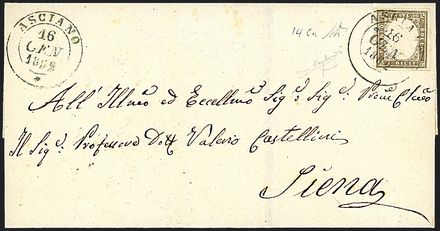 ASCIANO
16
GEN
1862
14 Ca
ASCIA
16
GEN
All' Illmo ed Eccellmo Sigr. Sigr.
Il Sigr. Professore Dott Valerio Castellini
Siena